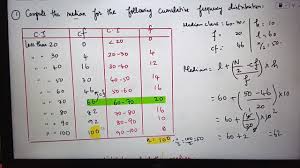 ① Compute the median for the following cumulative frequency distribution:
C.I cf C.I f
less than 20 0 < 20 0
" " 30 4 20-30 4
" " 40 16 30-40 12
" " 50 30 40-50 14
" " 60 46 50-60 16
" " 70 66 60-70 20
" " 80 82 70-80 16
" " 90 92 80-90 10
" " 100 100 90-100 8
n = 100
Median class = 60-70
l = 60
f = 20
cf = 46
h = 10
N/2 = 50
Median = l + (N/2 - cf / f) x h
= 60 + (50-46 / 20) x 10
= 60 + 2 = 62